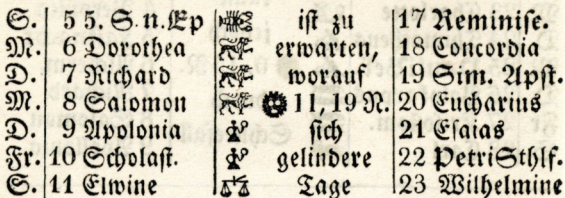 S. 5 5. S. n. Ep ist zu 17 Reminise.
M. 6 Dorothea erwarten, 18 Concordia
D. 7 Richard worauf 19 Sim. Apst.
M. 8 Salomon 11,19 N. 20 Eucharius
D. 9 Apolonia sich 21 Esaias
Fr. 10 Scholast. gelindere 22 PetriSthlf.
S. 11 Elwine Tage 23 Wilhelmine